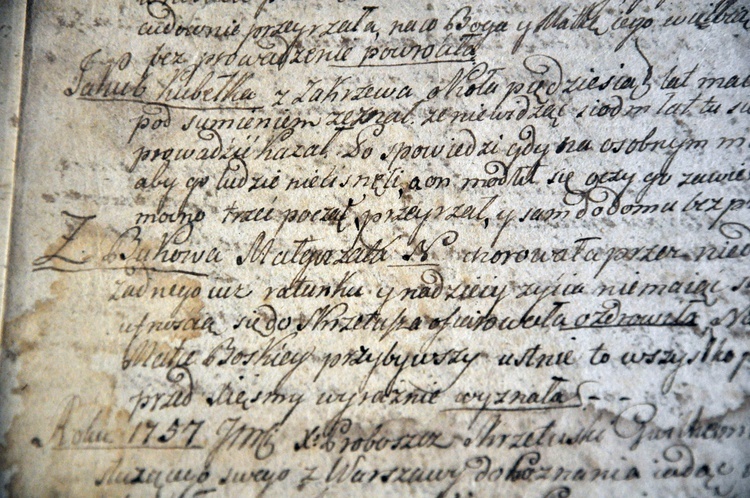 cudownie przeyrzała, na co Boga y Matkę iego wielbiąc
bez prowadzenia powróciła
Jakub Kubełka z Zakrzewa około pięćdziesiąt lat maią
pod sumieniem zeznał, ze niewidząc siedm lat tu s
prowadzić kazał. Do spowiedzi gdy na osobnym m
aby go ludzie niecisnęli, a on modlił się oczy go zawie
mocno trzeć począł, przeyrzał, y sam do domu bez p
Z. Bukowa Małgorzata N chorowała przez nied
żadnego iuz ratunku y nadzieię zycia niemaiąc s
ufnoscią się do Skrzetusza ofiarowała ozdrowiała, N
Matce Boskiey przybywszy ustnie to wszystko p
przed wyraznie wyznała - -
Roku 1757 Jmć X. Proboszcz Skrzetuski
słuzącego swego z Warszawy do Poznania iadąc